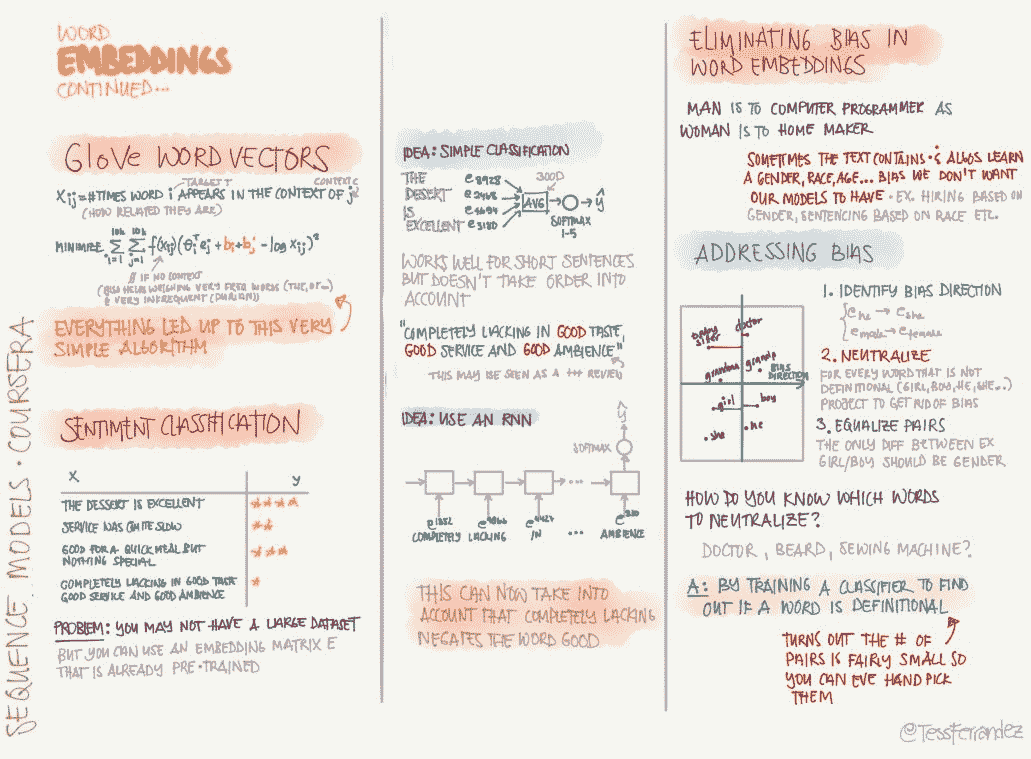 WORD
EMBEDDINGS
CONTINUED...
GloVe WORD VECTORS
TARGET T
CONTEXT C
Xij = # TIMES WORD i APPEARS IN THE CONTEXT OF j
(HOW RELATED THEY ARE)
MINIMIZE Σ i=1 10k Σ j=1 10k f(Xij)(θiᵀej + bi + bj' - log Xij)²
IF NO CONTEXT
(ALSO HELPS WEIGHING VERY FREQ WORDS (THE, OF...)
& VERY INFREQUENT (DURIAN))
EVERYTHING LED UP TO THIS VERY
SIMPLE ALGORITHM
SENTIMENT CLASSIFICATION
X y
THE DESSERT IS EXCELLENT ★★★★
SERVICE WAS QUITE SLOW ★★
GOOD FOR A QUICK MEAL BUT ★★★
NOTHING SPECIAL
COMPLETELY LACKING IN GOOD TASTE ★
GOOD SERVICE AND GOOD AMBIENCE
PROBLEM: YOU MAY NOT HAVE A LARGE DATASET
BUT YOU CAN USE AN EMBEDDING MATRIX E
THAT IS ALREADY PRE-TRAINED
SEQUENCE MODELS · COURSERA
IDEA: SIMPLE CLASSIFICATION
THE e8928
DESERT e2468
IS e4694
EXCELLENT e3180
300D
AVG
ŷ
SOFTMAX
1-5
WORKS WELL FOR SHORT SENTENCES
BUT DOESN'T TAKE ORDER INTO
ACCOUNT
"COMPLETELY LACKING IN GOOD TASTE,
GOOD SERVICE AND GOOD AMBIENCE"
THIS MAY BE SEEN AS A +++ REVIEW
IDEA: USE AN RNN
ŷ
SOFTMAX
e1852 e4966 e4427 ... e330
COMPLETELY LACKING IN ... AMBIENCE
THIS CAN NOW TAKE INTO
ACCOUNT THAT COMPLETELY LACKING
NEGATES THE WORD GOOD
ELIMINATING BIAS IN
WORD EMBEDDINGS
MAN IS TO COMPUTER PROGRAMMER AS
WOMAN IS TO HOME MAKER
SOMETIMES THE TEXT CONTAINS · & ALGOS LEARN
A GENDER, RACE, AGE... BIAS WE DON'T WANT
OUR MODELS TO HAVE · EX. HIRING BASED ON
GENDER, SENTENCING BASED ON RACE ETC.
ADDRESSING BIAS
baby
sitter
doctor
grandma
grandp
BIAS
DIRECTION
girl
boy
she
he
1. IDENTIFY BIAS DIRECTION
ehe → eshe
emale → efemale
2. NEUTRALIZE
FOR EVERY WORD THAT IS NOT
DEFINITIONAL (GIRL, BOY, HE, SHE...)
PROJECT TO GET RID OF BIAS
3. EQUALIZE PAIRS
THE ONLY DIFF BETWEEN EX
GIRL/BOY SHOULD BE GENDER
HOW DO YOU KNOW WHICH WORDS
TO NEUTRALIZE?
DOCTOR, BEARD, SEWING MACHINE?
A: BY TRAINING A CLASSIFIER TO FIND
OUT IF A WORD IS DEFINITIONAL
TURNS OUT THE # OF
PAIRS IS FAIRLY SMALL SO
YOU CAN EVE HAND PICK
THEM
@TessFerrandez